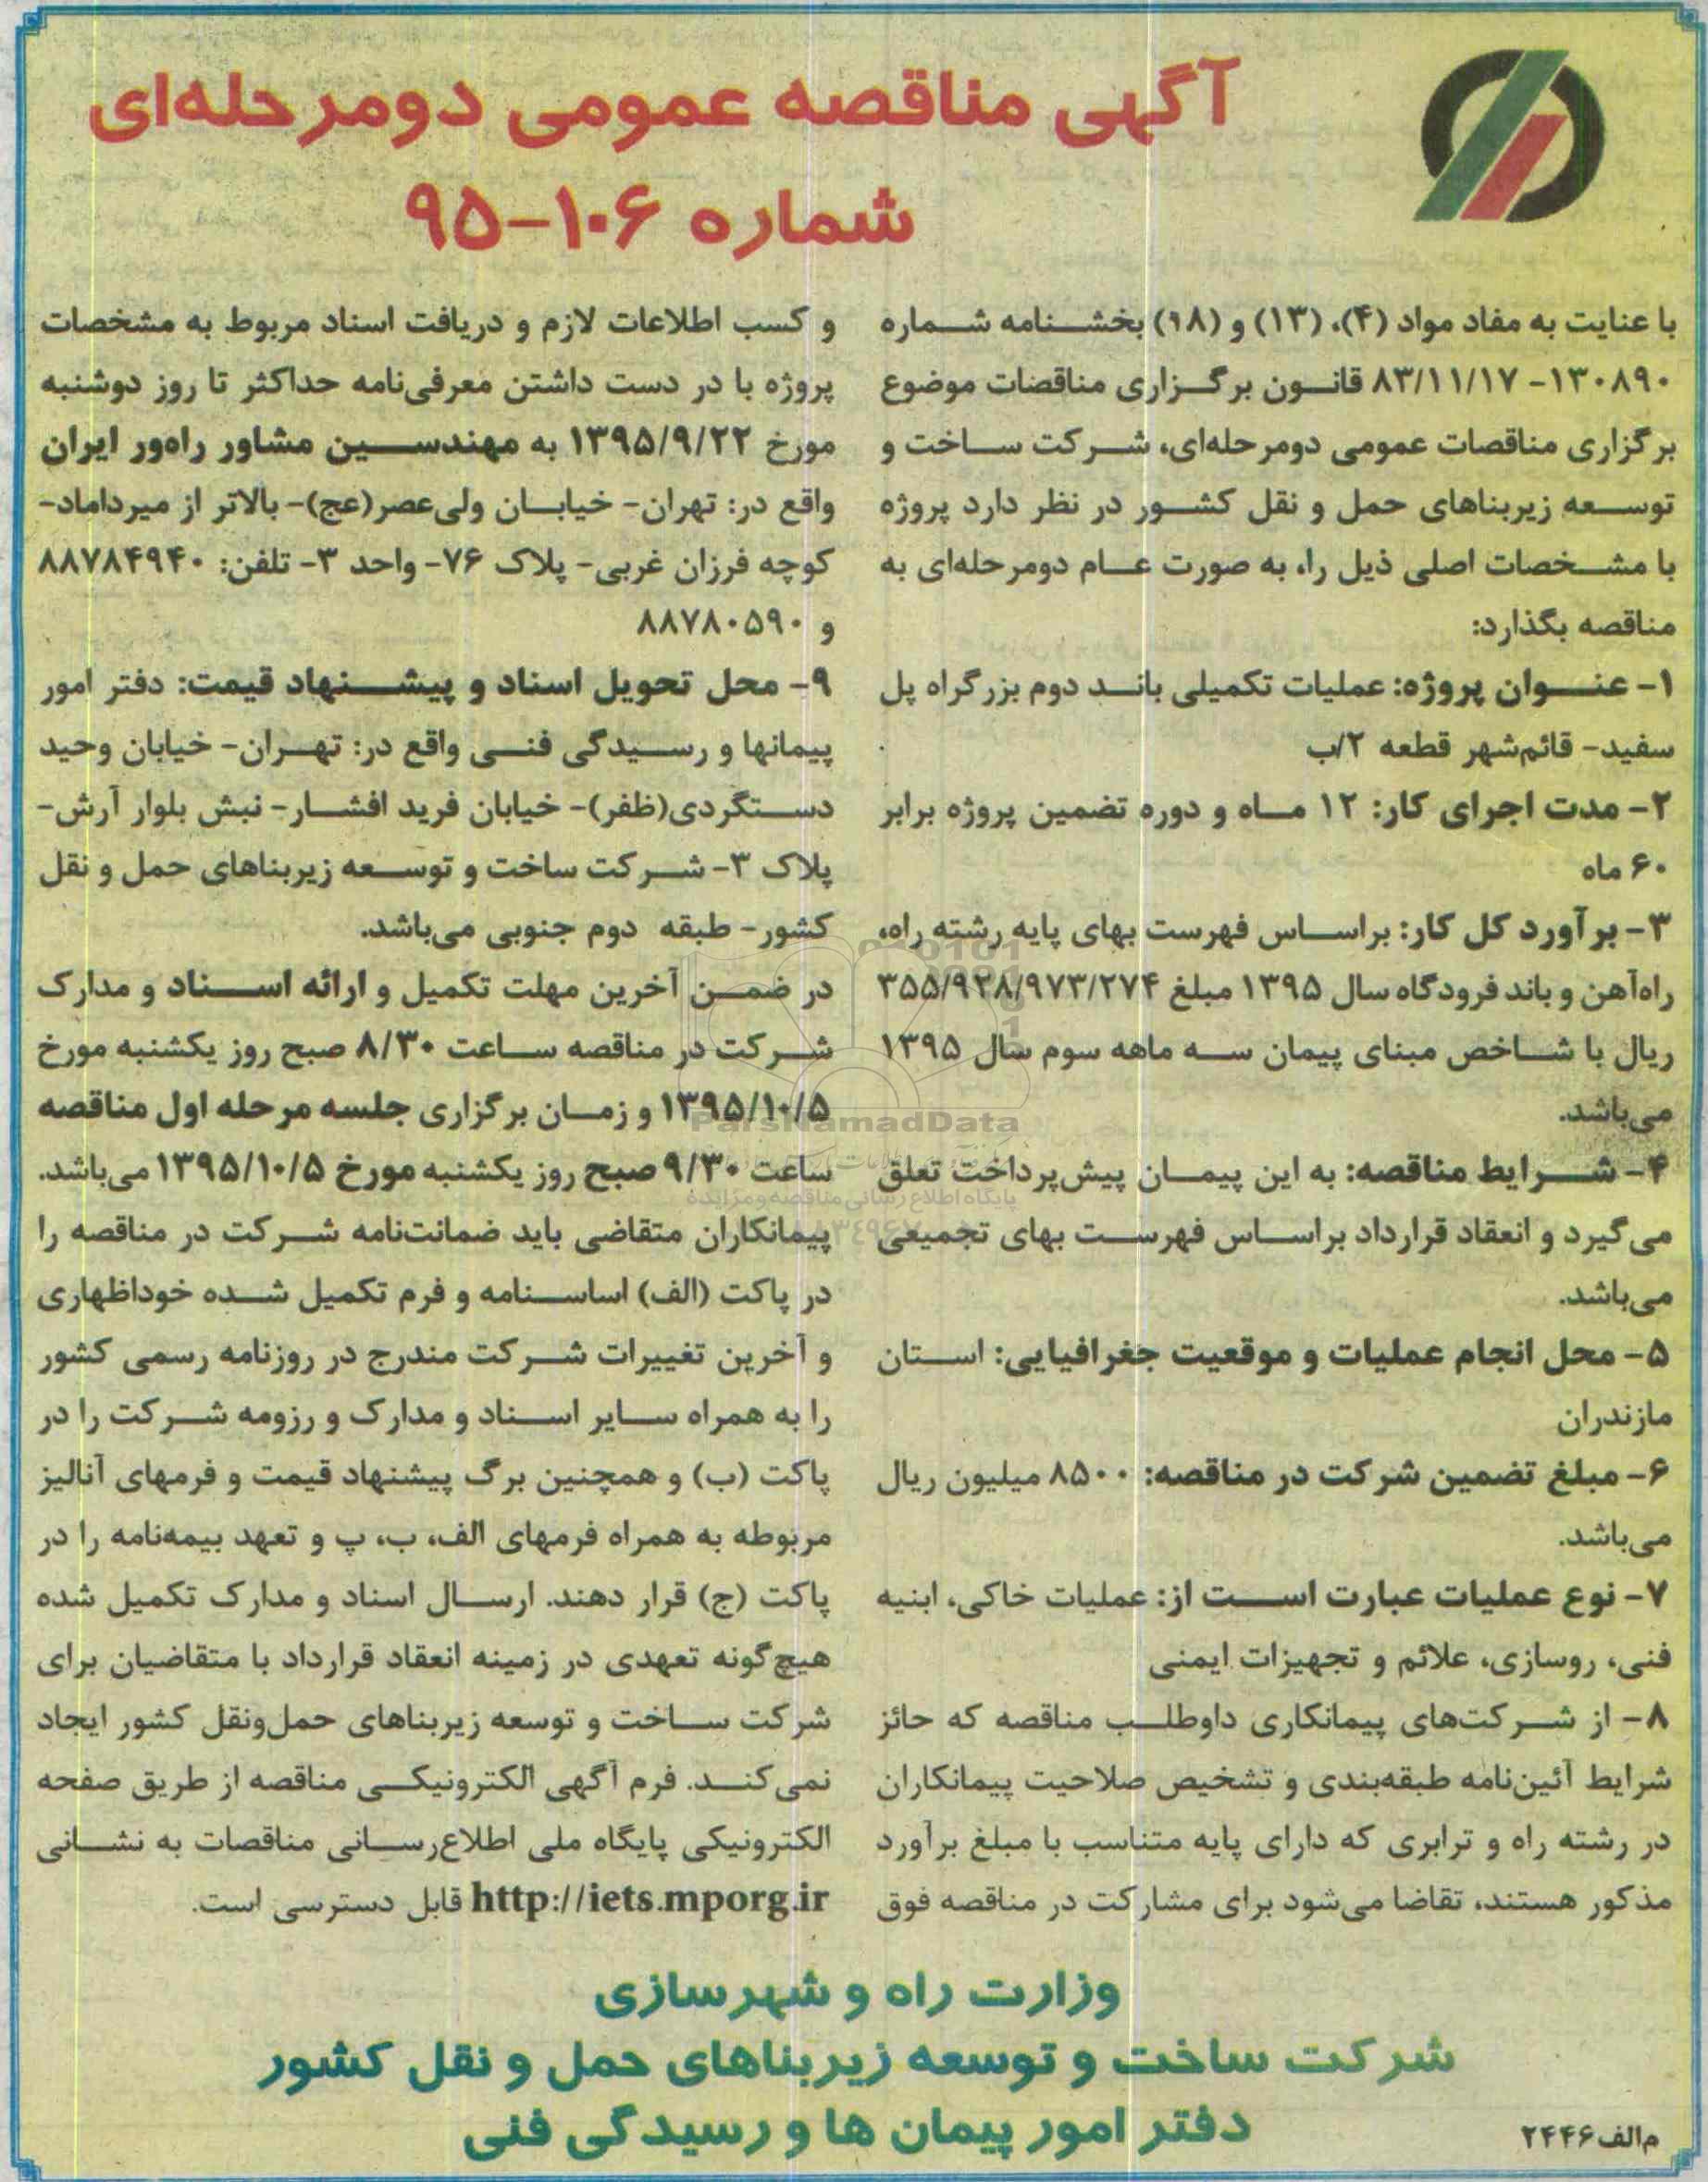 آگهی مناقصه عمومی دومرحله‌ای
شماره ۱۰۶-۹۵
با عنایت به مفاد مواد (۴)، (۱۳) و (۱۸) بخشنامه شماره
۱۳۰۸۹۰- ۸۳/۱۱/۱۷ قانون برگزاری مناقصات موضوع
برگزاری مناقصات عمومی دومرحله‌ای، شرکت ساخت و
توسعه زیربناهای حمل و نقل کشور در نظر دارد پروژه
با مشخصات اصلی ذیل را، به صورت عام دومرحله‌ای به
مناقصه بگذارد:
۱- عنوان پروژه: عملیات تکمیلی باند دوم بزرگراه پل
سفید- قائم‌شهر قطعه ۲/ب
۲- مدت اجرای کار: ۱۲ ماه و دوره تضمین پروژه برابر
۶۰ ماه
۳- برآورد کل کار: براساس فهرست بهای پایه رشته راه،
راه‌آهن و باند فرودگاه سال ۱۳۹۵ مبلغ ۳۵۵/۹۲۸/۹۷۳/۲۷۴
ریال با شاخص مبنای پیمان سه ماهه سوم سال ۱۳۹۵
می‌باشد.
۴- شرایط مناقصه: به این پیمان پیش‌پرداخت تعلق
می‌گیرد و انعقاد قرارداد براساس فهرست بهای تجمیعی
می‌باشد.
۵- محل انجام عملیات و موقعیت جغرافیایی: استان
مازندران
۶- مبلغ تضمین شرکت در مناقصه: ۸۵۰۰ میلیون ریال
می‌باشد.
۷- نوع عملیات عبارت است از: عملیات خاکی، ابنیه
فنی، روسازی، علائم و تجهیزات ایمنی
۸- از شرکت‌های پیمانکاری داوطلب مناقصه که حائز
شرایط آئین‌نامه طبقه‌بندی و تشخیص صلاحیت پیمانکاران
در رشته راه و ترابری که دارای پایه متناسب با مبلغ برآورد
مذکور هستند، تقاضا می‌شود برای مشارکت در مناقصه فوق
و کسب اطلاعات لازم و دریافت اسناد مربوط به مشخصات
پروژه با در دست داشتن معرفی‌نامه حداکثر تا روز دوشنبه
مورخ ۱۳۹۵/۹/۲۲ به مهندسین مشاور راه‌ور ایران
واقع در: تهران- خیابان ولی‌عصر(عج)- بالاتر از میرداماد-
کوچه فرزان غربی- پلاک ۷۶- واحد ۳- تلفن: ۸۸۷۸۴۹۴۰
و ۸۸۷۸۰۵۹۰
۹- محل تحویل اسناد و پیشنهاد قیمت: دفتر امور
پیمانها و رسیدگی فنی واقع در: تهران- خیابان وحید
دستگردی(ظفر)- خیابان فرید افشار- نبش بلوار آرش-
پلاک ۳- شرکت ساخت و توسعه زیربناهای حمل و نقل
کشور- طبقه دوم جنوبی می‌باشد.
در ضمن آخرین مهلت تکمیل و ارائه اسناد و مدارک
شرکت در مناقصه ساعت ۸/۳۰ صبح روز یکشنبه مورخ
۱۳۹۵/۱۰/۵ و زمان برگزاری جلسه مرحله اول مناقصه
ساعت ۹/۳۰ صبح روز یکشنبه مورخ ۱۳۹۵/۱۰/۵ می‌باشد.
پیمانکاران متقاضی باید ضمانت‌نامه شرکت در مناقصه را
در پاکت (الف) اساسنامه و فرم تکمیل شده خوداظهاری
و آخرین تغییرات شرکت مندرج در روزنامه رسمی کشور
را به همراه سایر اسناد و مدارک و رزومه شرکت را در
پاکت (ب) و همچنین برگ پیشنهاد قیمت و فرمهای آنالیز
مربوطه به همراه فرمهای الف، ب، پ و تعهد بیمه‌نامه را در
پاکت (ج) قرار دهند. ارسال اسناد و مدارک تکمیل شده
هیچ‌گونه تعهدی در زمینه انعقاد قرارداد با متقاضیان برای
شرکت ساخت و توسعه زیربناهای حمل‌ونقل کشور ایجاد
نمی‌کند. فرم آگهی الکترونیکی مناقصه از طریق صفحه
الکترونیکی پایگاه ملی اطلاع‌رسانی مناقصات به نشانی
http://iets.mporg.ir قابل دسترسی است.
وزارت راه و شهرسازی
شرکت ساخت و توسعه زیربناهای حمل و نقل کشور
دفتر امور پیمان ها و رسیدگی فنی
م‌الف ۲۴۴۶
ParsNamadData
پایگاه اطلاع رسانی مناقصه و مزایده